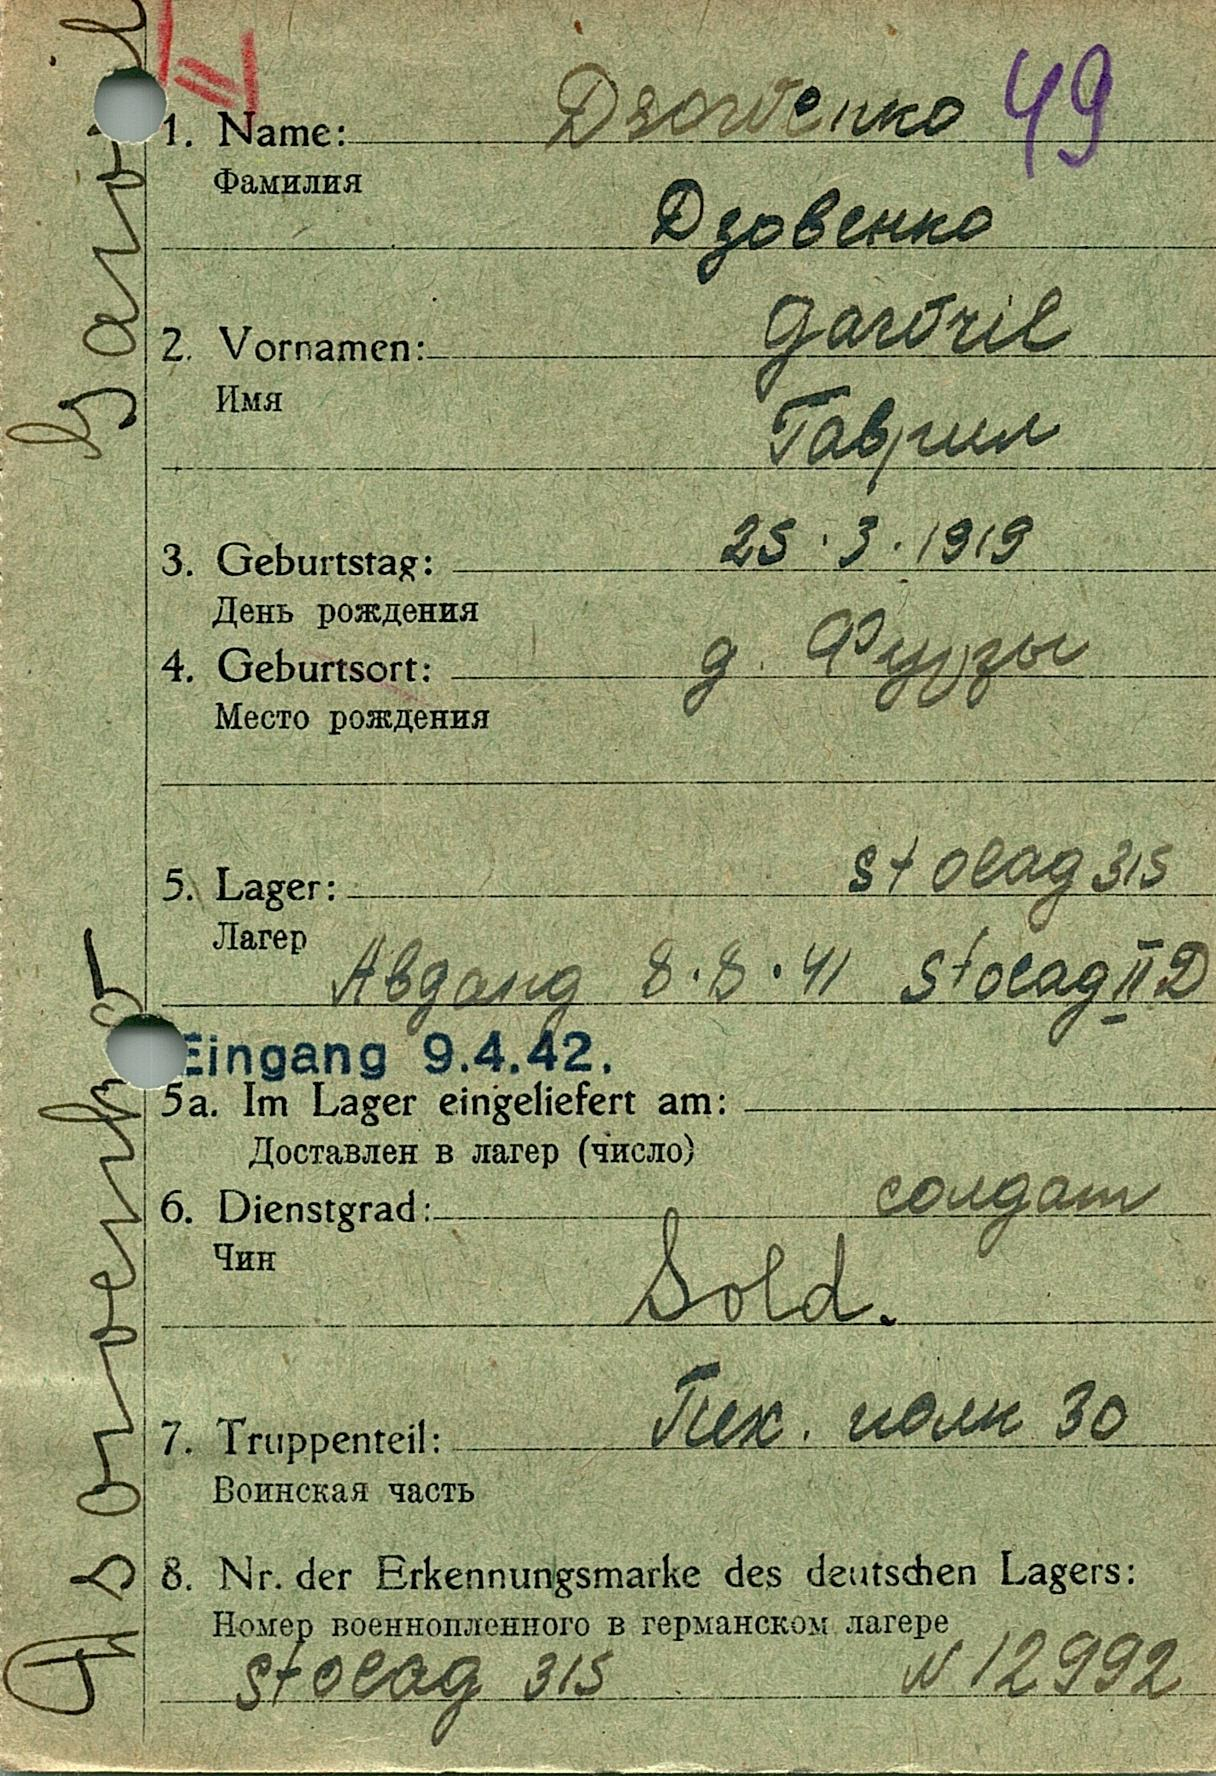 49
1. Name: Dsowenko
Фамилия
Дзовенко
2. Vornamen: Gawril
Имя
Гаврил
3. Geburtstag: 25.3.1919
День рождения
4. Geburtsort: д. Фурзы
Место рождения
5. Lager: Stalag 315
Лагер
Abgang 8.8.41 Stalag II D
Eingang 9.4.42.
5a. Im Lager eingeliefert am:
Доставлен в лагер (число)
6. Dienstgrad: солдат
Чин
Sold.
7. Truppenteil: Пех. полк 30
Воинская часть
8. Nr. der Erkennungsmarke des deutschen Lagers:
Номер военнопленного в германском лагере
Stalag 315 N 12992
Dsowenko Gawril